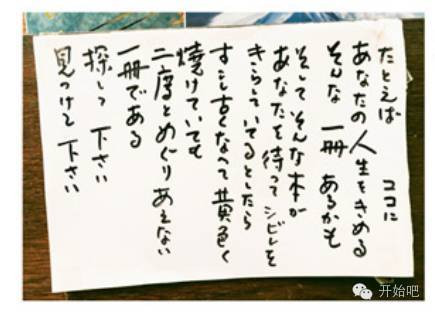 たとえば　ココに
あなたの人生をきめる
そんな一冊あるかも
そしてそんな本が
あなたを待ってシビレを
きらしているとしたら
すこし古くなって黄色く
焼けていても
二度とめぐりあえない
一冊である
探して下さい
見つけて下さい
开始吧